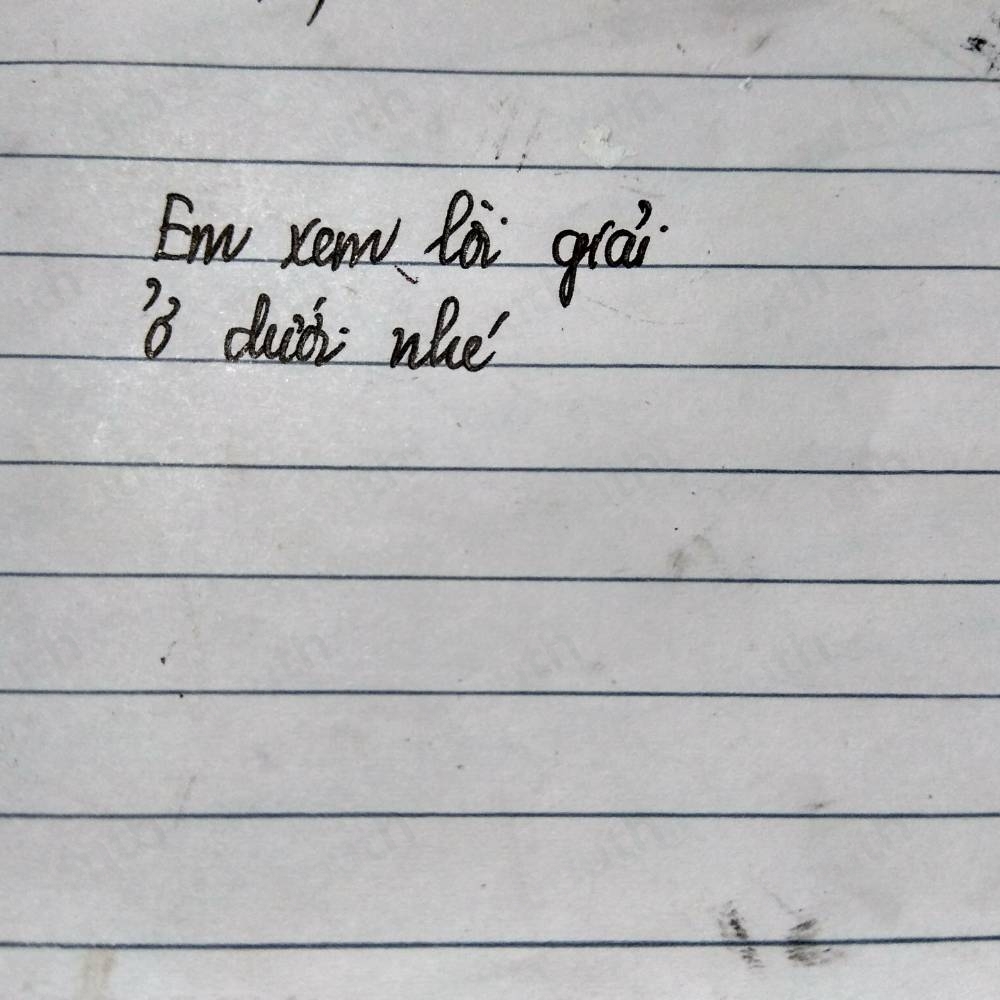 Em xem lời giải
ở dưới nhé